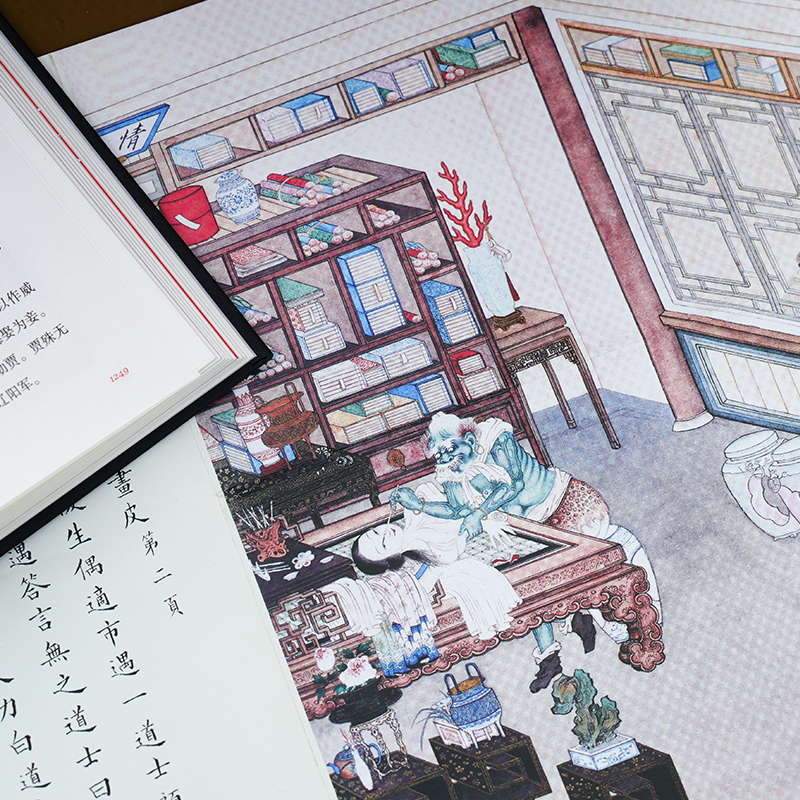 情
以作威
娶为妾。
贾。贾殊无
辽阳军。
1249
畫皮第二頁
生偶適市遇一道士
遇答言無之道士曰
力白道